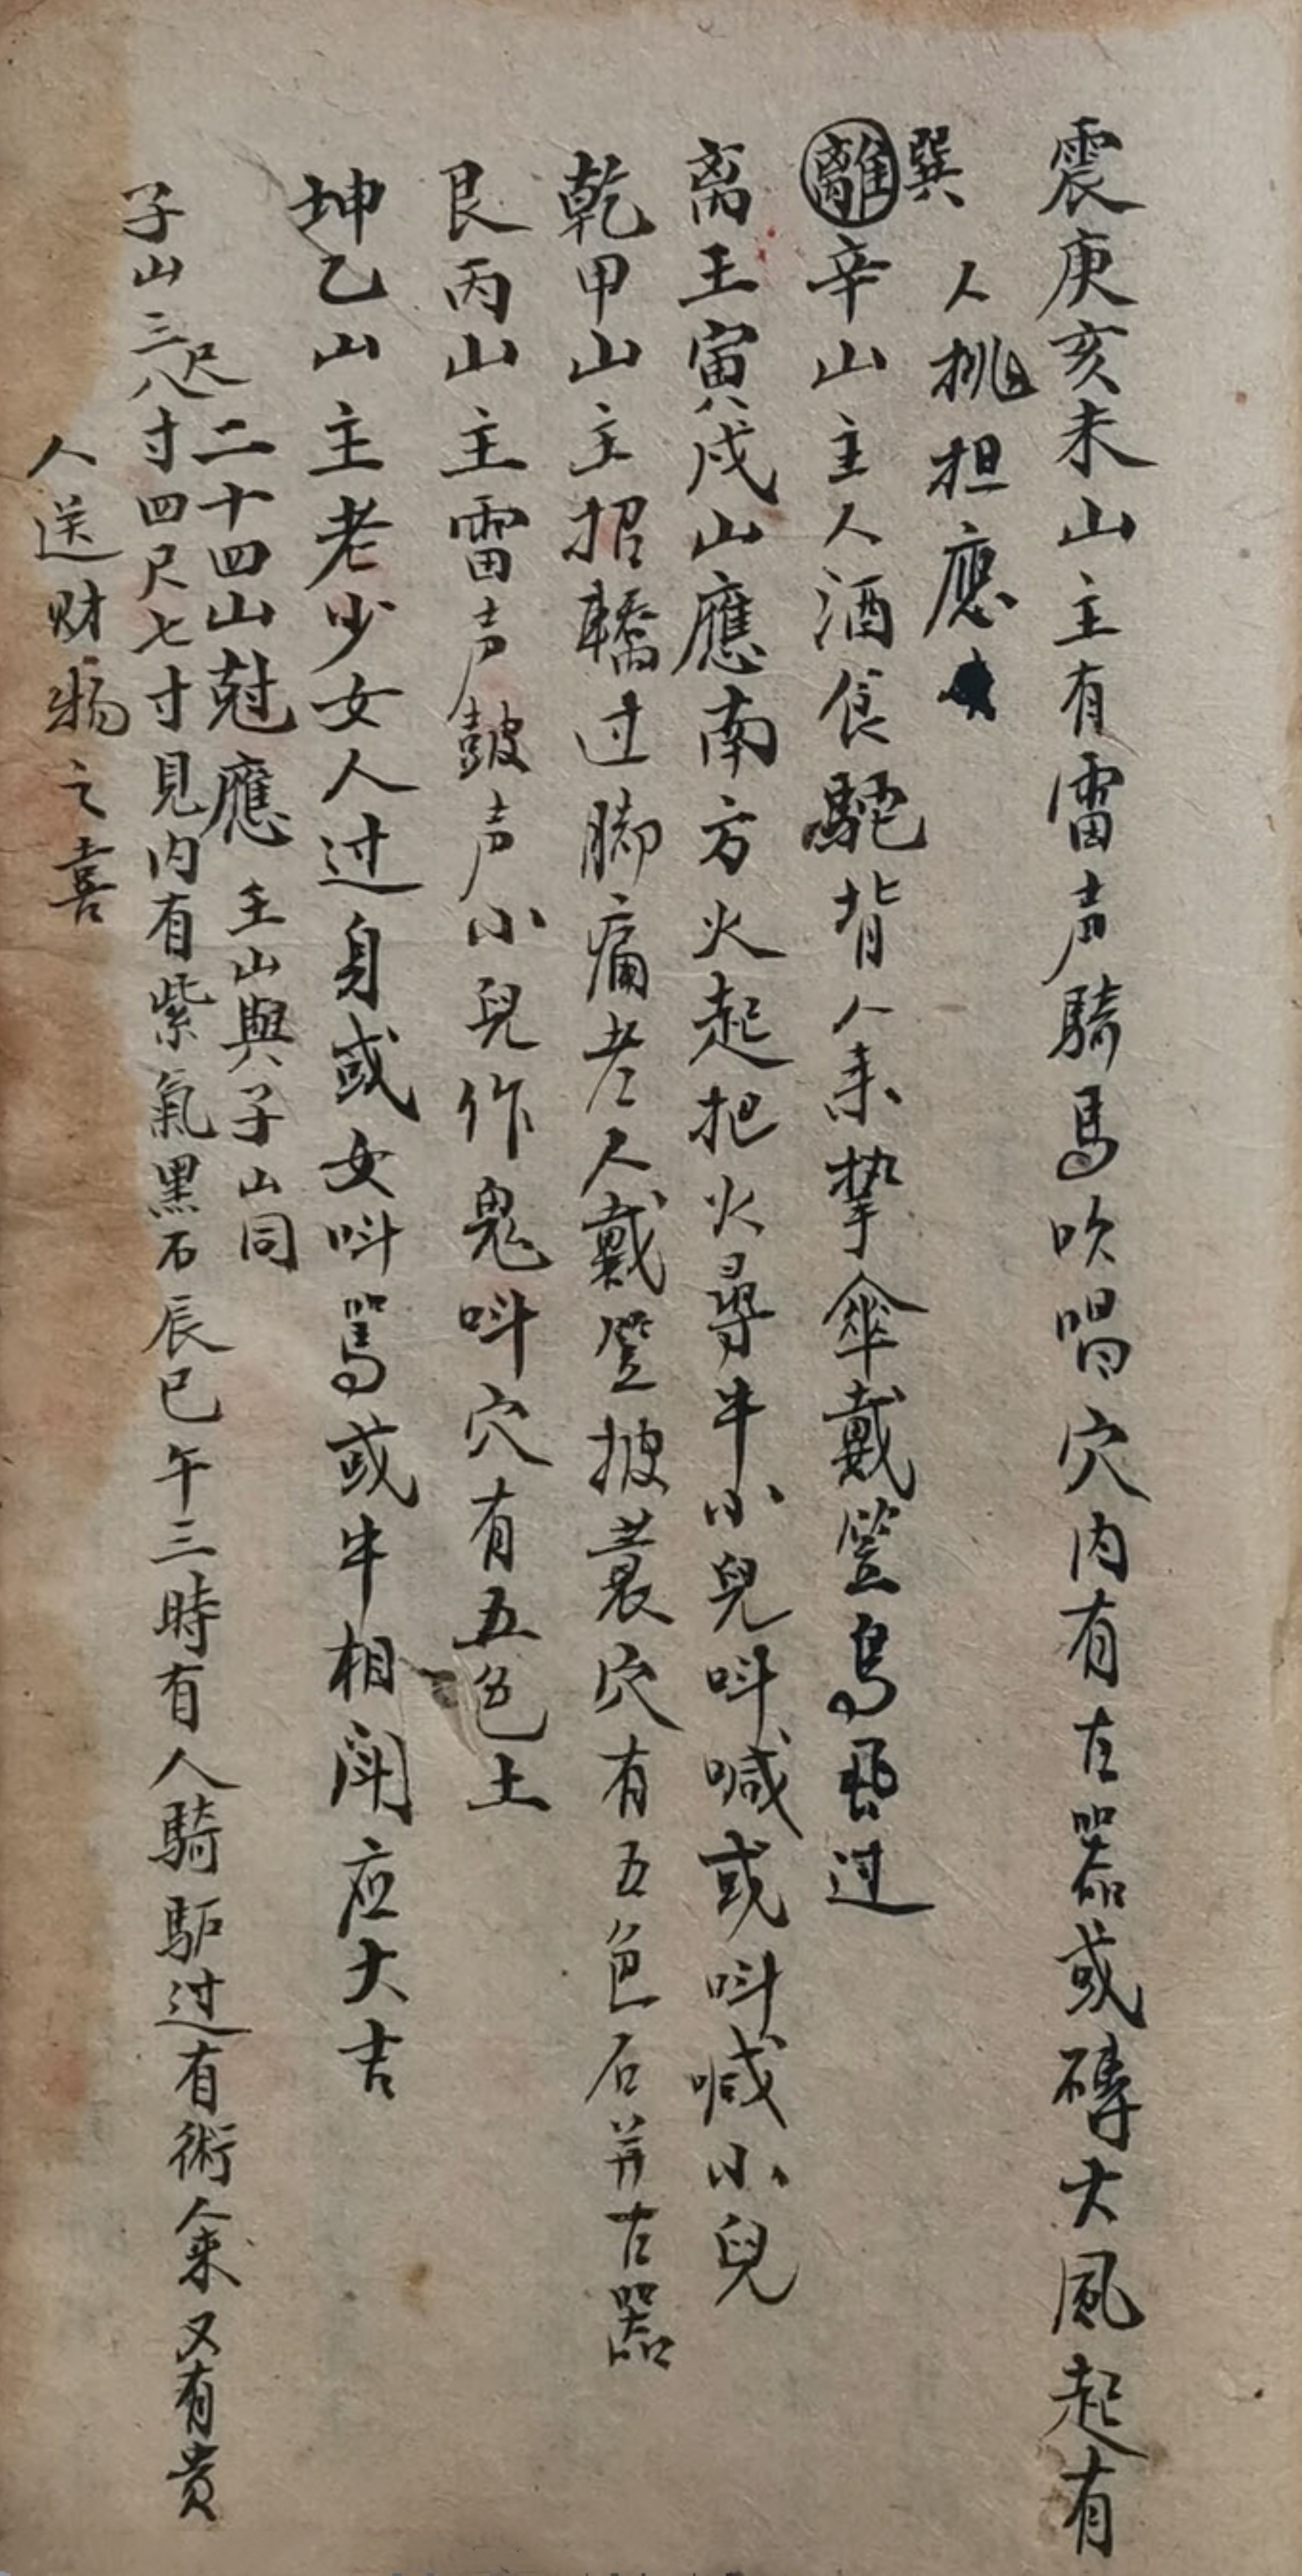 震庚亥未山主有雷声騎馬吹唱穴内有古器或磚大風起有
人挑担應
巽
離辛山主人酒食駝背人来挚傘戴笠鳥飛过
离壬寅戌山應南方火起把火尋牛小兒呌喊或呌喊小兒
乾甲山主招轎过脚痛老人戴笠披蓑穴有五色石并古器
艮丙山主雷声鼓声小兒作鬼呌穴有五色土
坤乙山主老少女人过身或女呌罵或牛相闘应大吉
二十四山尅應 壬山與子山同
子山三尺八寸四尺七寸見内有紫氣黑石辰巳午三時有人騎馿过有術人来又有贵
人送财物之喜